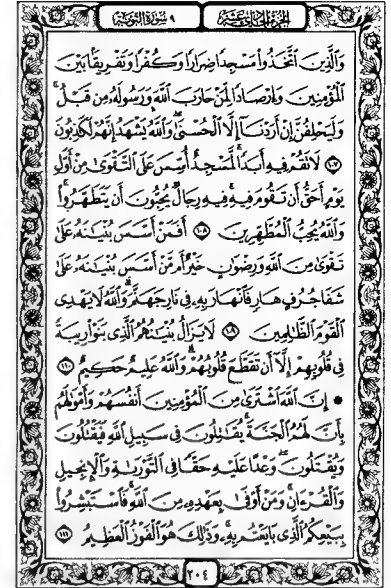 الجزء الحادي عشر ٩ سورة التوبة
وَالَّذِينَ اتَّخَذُوا مَسْجِدًا ضِرَارًا وَكُفْرًا وَتَفْرِيقًا بَيْنَ
الْمُؤْمِنِينَ وَإِرْصَادًا لِّمَنْ حَارَبَ اللَّهَ وَرَسُولَهُ مِن قَبْلُ ۚ
وَلَيَحْلِفُنَّ إِنْ أَرَدْنَا إِلَّا الْحُسْنَىٰ ۖ وَاللَّهُ يَشْهَدُ إِنَّهُمْ لَكَاذِبُونَ
١٠٧ لَا تَقُمْ فِيهِ أَبَدًا ۚ لَّمَسْجِدٌ أُسِّسَ عَلَى التَّقْوَىٰ مِنْ أَوَّلِ
يَوْمٍ أَحَقُّ أَن تَقُومَ فِيهِ ۚ فِيهِ رِجَالٌ يُحِبُّونَ أَن يَتَطَهَّرُوا ۚ
وَاللَّهُ يُحِبُّ الْمُطَّهِّرِينَ ١٠٨ أَفَمَنْ أَسَّسَ بُنْيَانَهُ عَلَىٰ
تَقْوَىٰ مِنَ اللَّهِ وَرِضْوَانٍ خَيْرٌ أَم مَّنْ أَسَّسَ بُنْيَانَهُ عَلَىٰ
شَفَا جُرُفٍ هَارٍ فَانْهَارَ بِهِ فِي نَارِ جَهَنَّمَ ۗ وَاللَّهُ لَا يَهْدِي
الْقَوْمَ الظَّالِمِينَ ١٠٩ لَا يَزَالُ بُنْيَانُهُمُ الَّذِي بَنَوْا رِيبَةً
فِي قُلُوبِهِمْ إِلَّا أَن تَقَطَّعَ قُلُوبُهُمْ ۗ وَاللَّهُ عَلِيمٌ حَكِيمٌ ١١٠
۞ إِنَّ اللَّهَ اشْتَرَىٰ مِنَ الْمُؤْمِنِينَ أَنفُسَهُمْ وَأَمْوَالَهُم
بِأَنَّ لَهُمُ الْجَنَّةَ ۚ يُقَاتِلُونَ فِي سَبِيلِ اللَّهِ فَيَقْتُلُونَ
وَيُقْتَلُونَ ۖ وَعْدًا عَلَيْهِ حَقًّا فِي التَّوْرَاةِ وَالْإِنجِيلِ
وَالْقُرْآنِ ۚ وَمَنْ أَوْفَىٰ بِعَهْدِهِ مِنَ اللَّهِ ۚ فَاسْتَبْشِرُوا
بِبَيْعِكُمُ الَّذِي بَايَعْتُم بِهِ ۚ وَذَٰلِكَ هُوَ الْفَوْزُ الْعَظِيمُ ١١١
٢٠٤